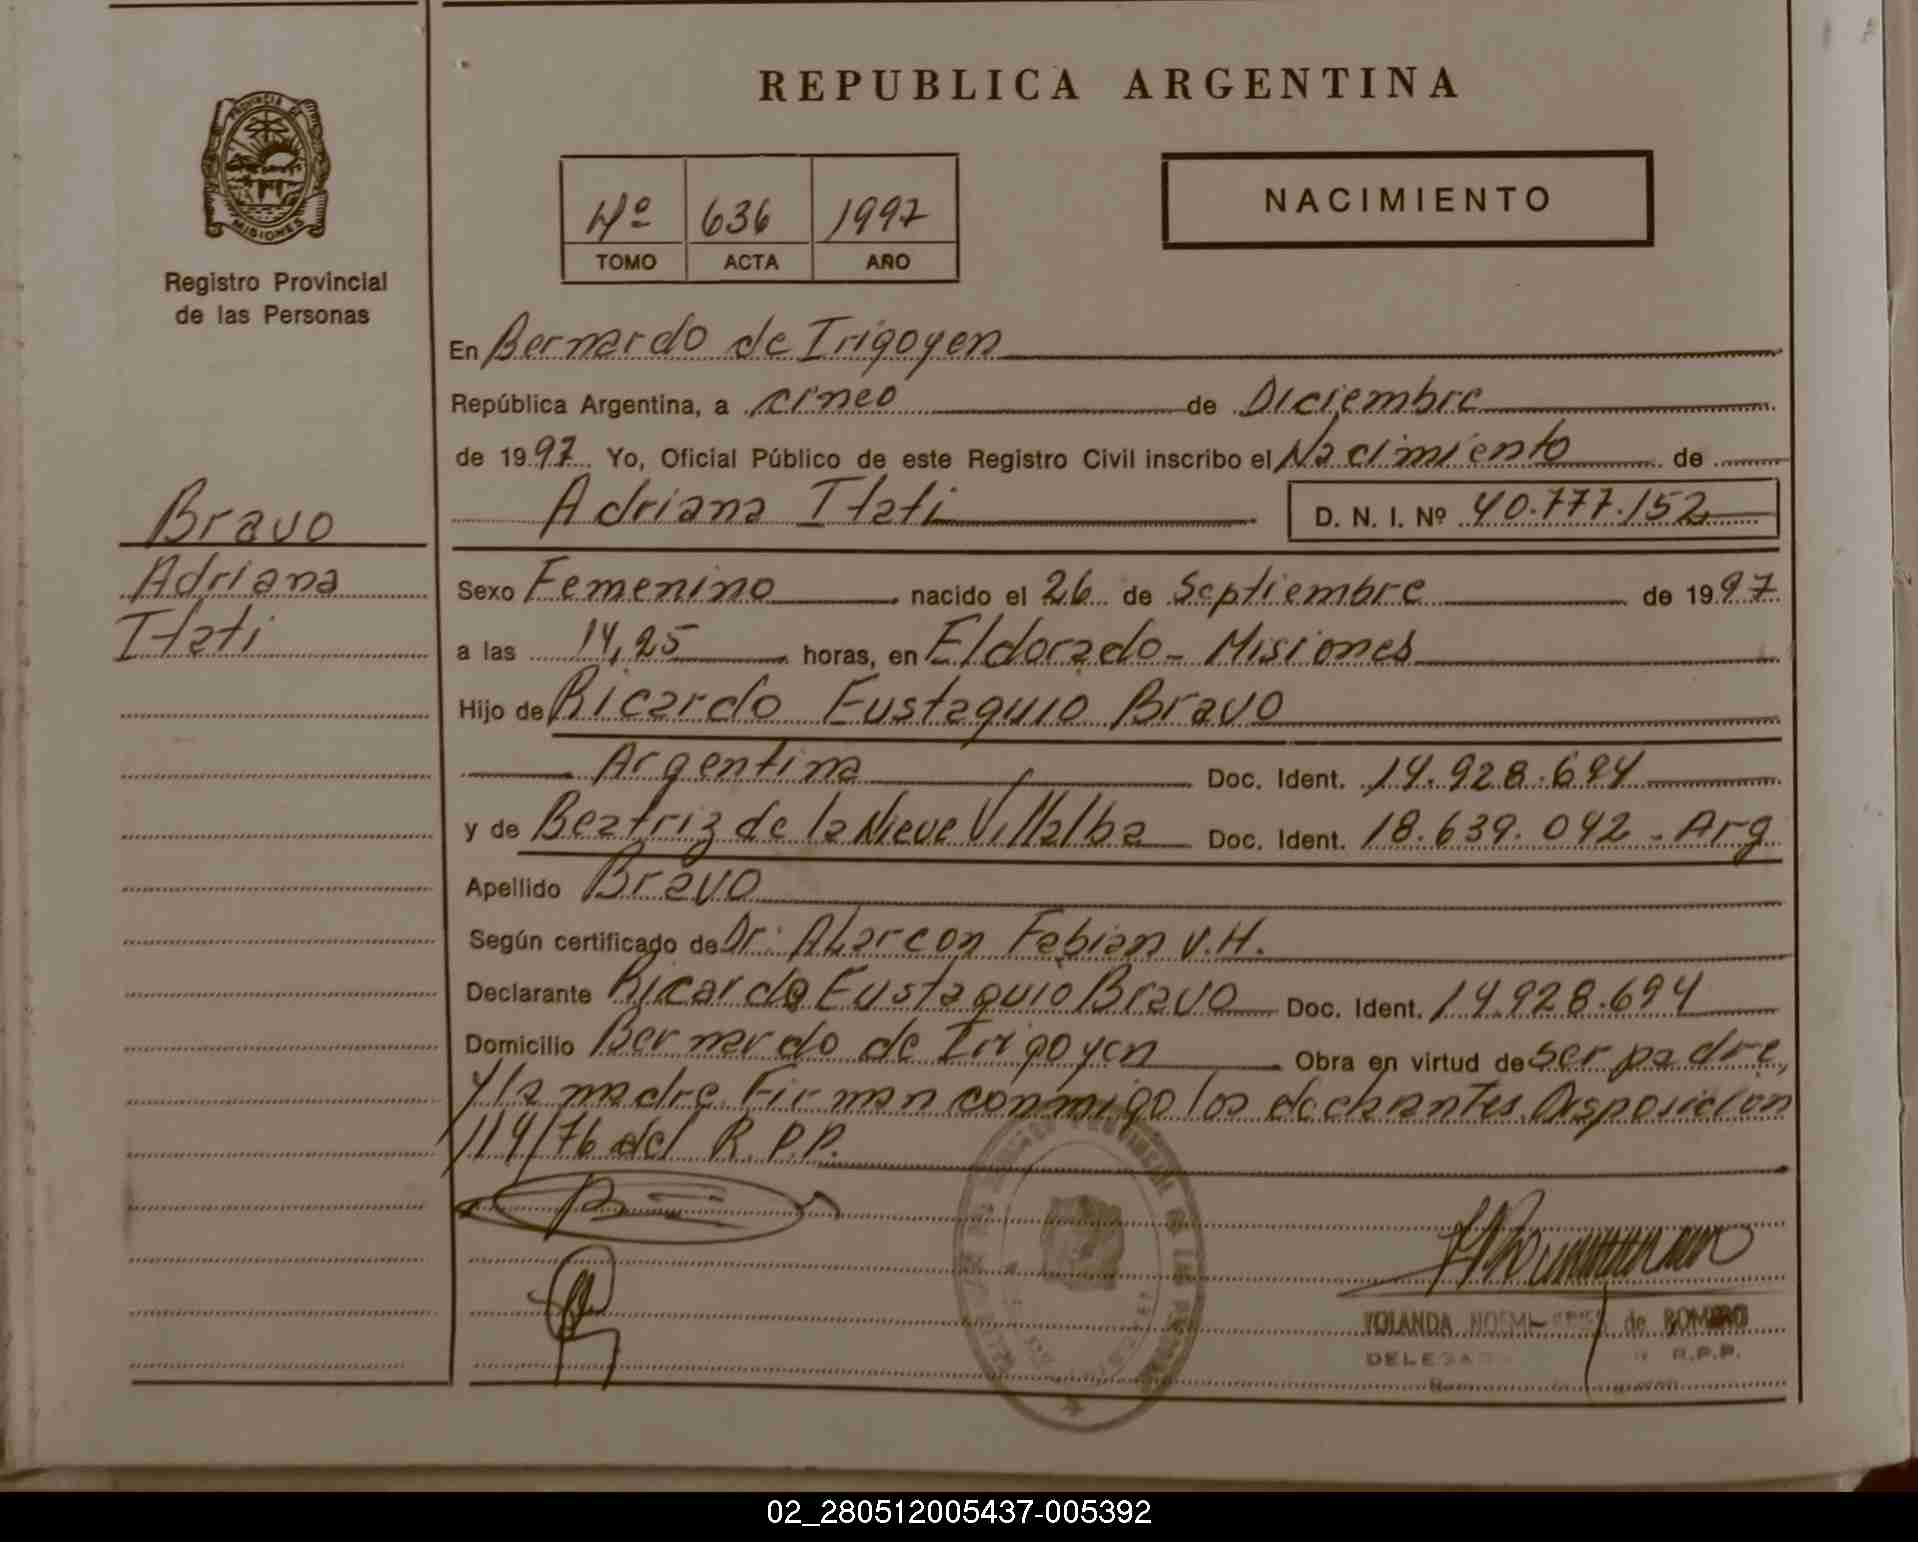 REPUBLICA ARGENTINA
PROVINCIA DE MISIONES
Registro Provincial
de las Personas
4º 636 1997
TOMO ACTA AÑO
NACIMIENTO
En Bernardo de Irigoyen
República Argentina, a cinco de Diciembre
de 1997 Yo, Oficial Público de este Registro Civil inscribo el Nacimiento de
Adriana Itati D. N. I. Nº 40.777.152
Bravo
Adriana
Itati
Sexo Femenino nacido el 26 de Septiembre de 1997
a las 14,25 horas, en Eldorado - Misiones
Hijo de Ricardo Eustaquio Bravo
Argentina Doc. Ident. 14.928.694
y de Beatriz de la Nieve Villalba Doc. Ident. 18.639.042 - Arg
Apellido Bravo
Según certificado de Dr: Alarcon Fabian V.H.
Declarante Ricardo Eustaquio Bravo Doc. Ident. 14.928.694
Domicilio Bernardo de Irigoyen Obra en virtud de ser padre,
y la madre. Firman conmigo los declarantes. Disposicion
114/76 del R.P.P.
YOLANDA NOEMI de ROMERO
R.P.P.
02_280512005437-005392